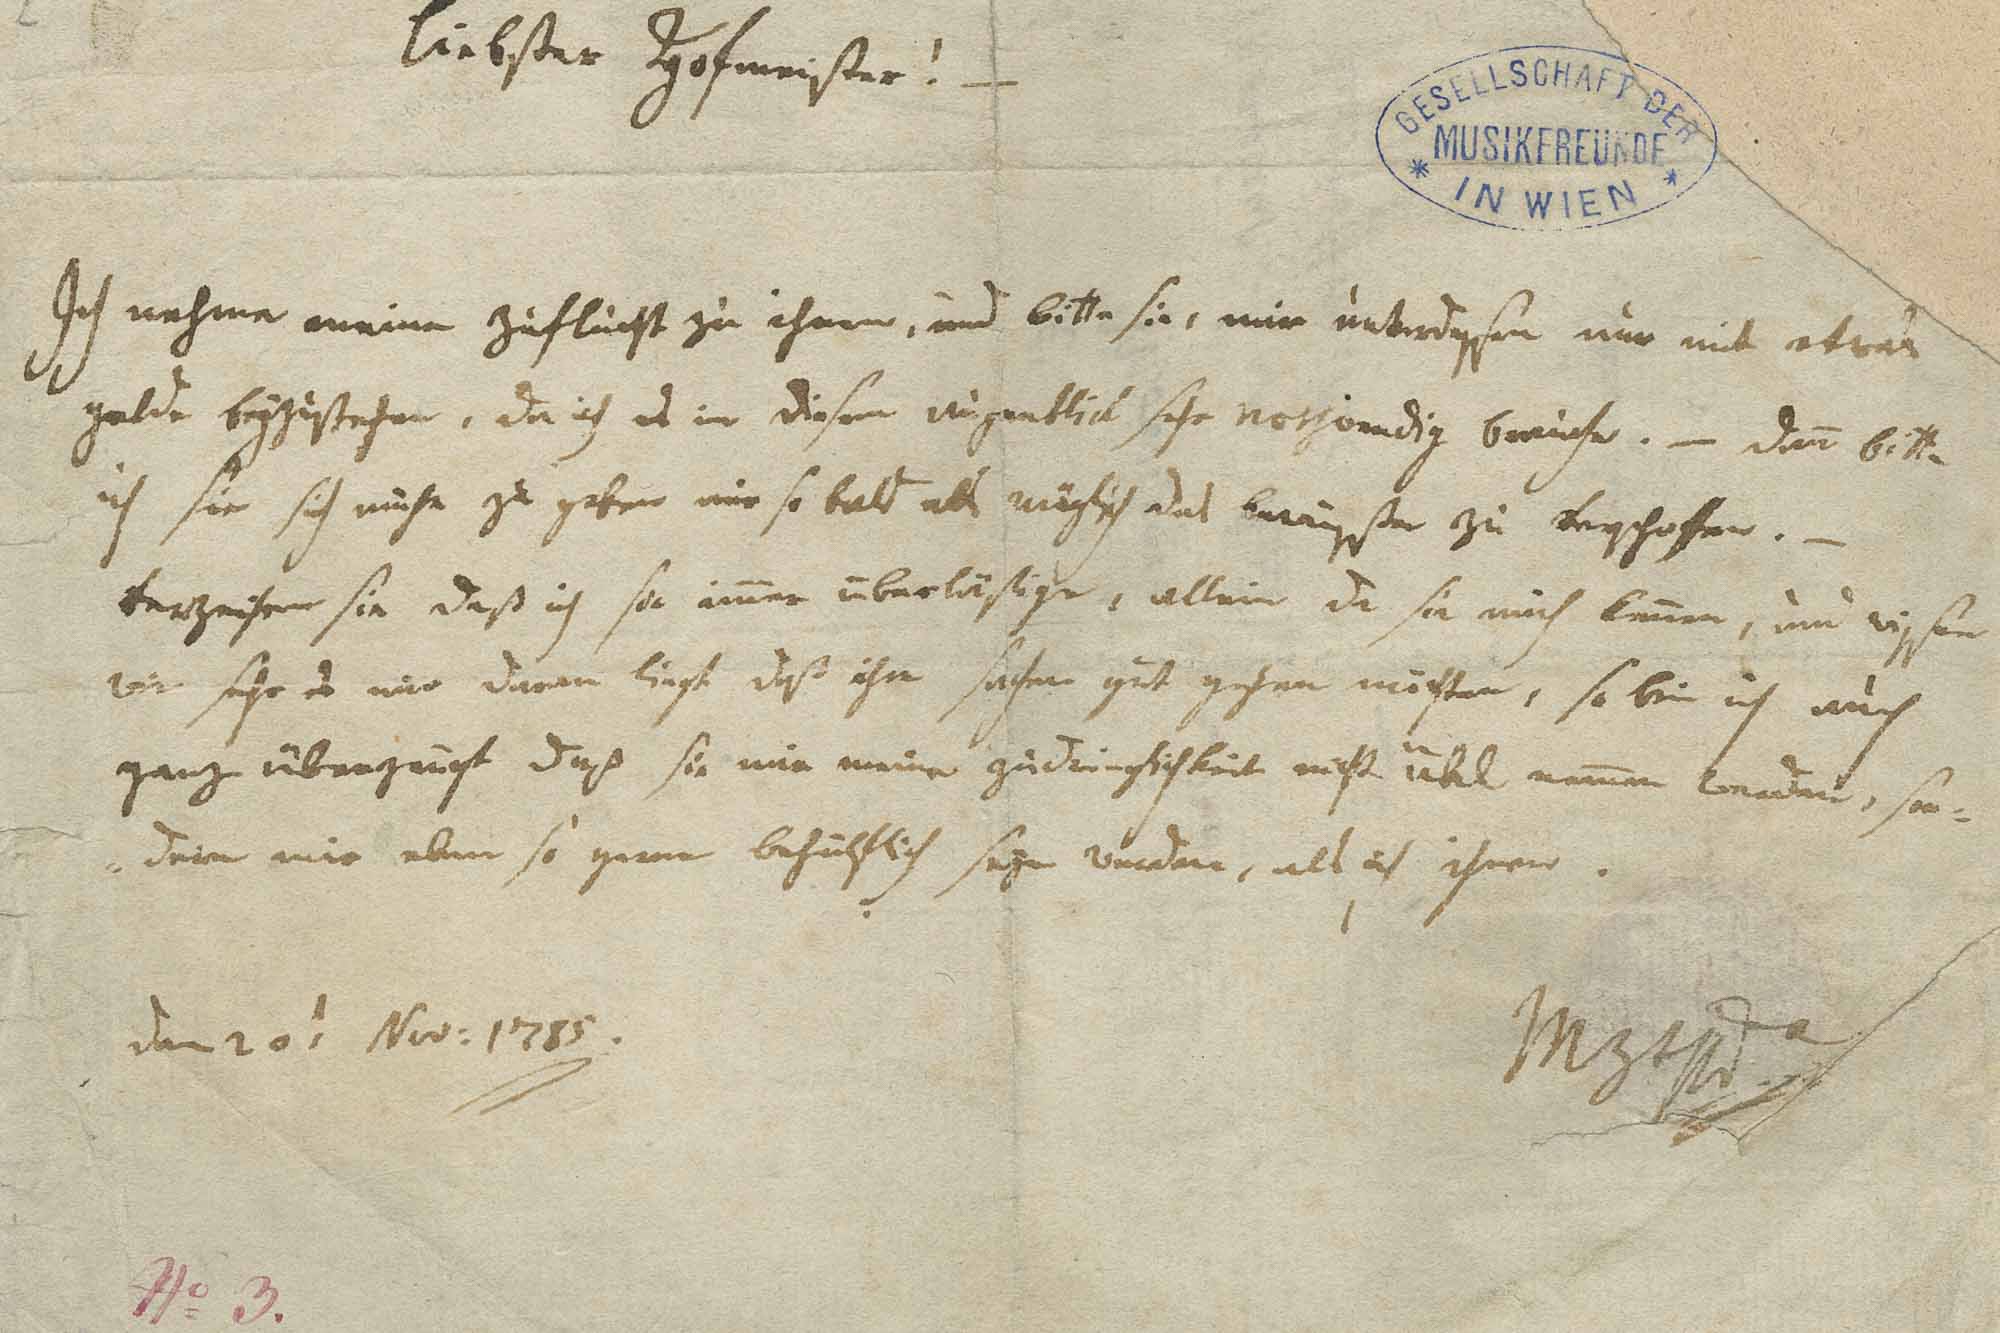 liebster Hofmeister! —
GESELLSCHAFT DER
MUSIKFREUNDE
* IN WIEN *
Ich nehme meine zuflucht zu ihnen, und bitte sie, mir unterdessen nur mit etwas
gelde beyzustehen, da ich es in diesem augenblick sehr nothwendig brauche. — dann bitte
ich sie sich mühe zu geben mir so bald als möglich das bewußte zu verschaffen. —
verzeihen sie daß ich sie immer überlästige, allein da sie mich kennen, und wissen
wie sehr es mir daran liegt daß ihre sachen gut gehen möchten, so bin ich auch
ganz überzeugt daß sie mir meine zudringlichkeit nicht übel nemmen werden, son=
=dern mir eben so gerne behülflich seyn werden, als ich ihnen.
den 20! Nov: 1785.
Mzt
No 3.